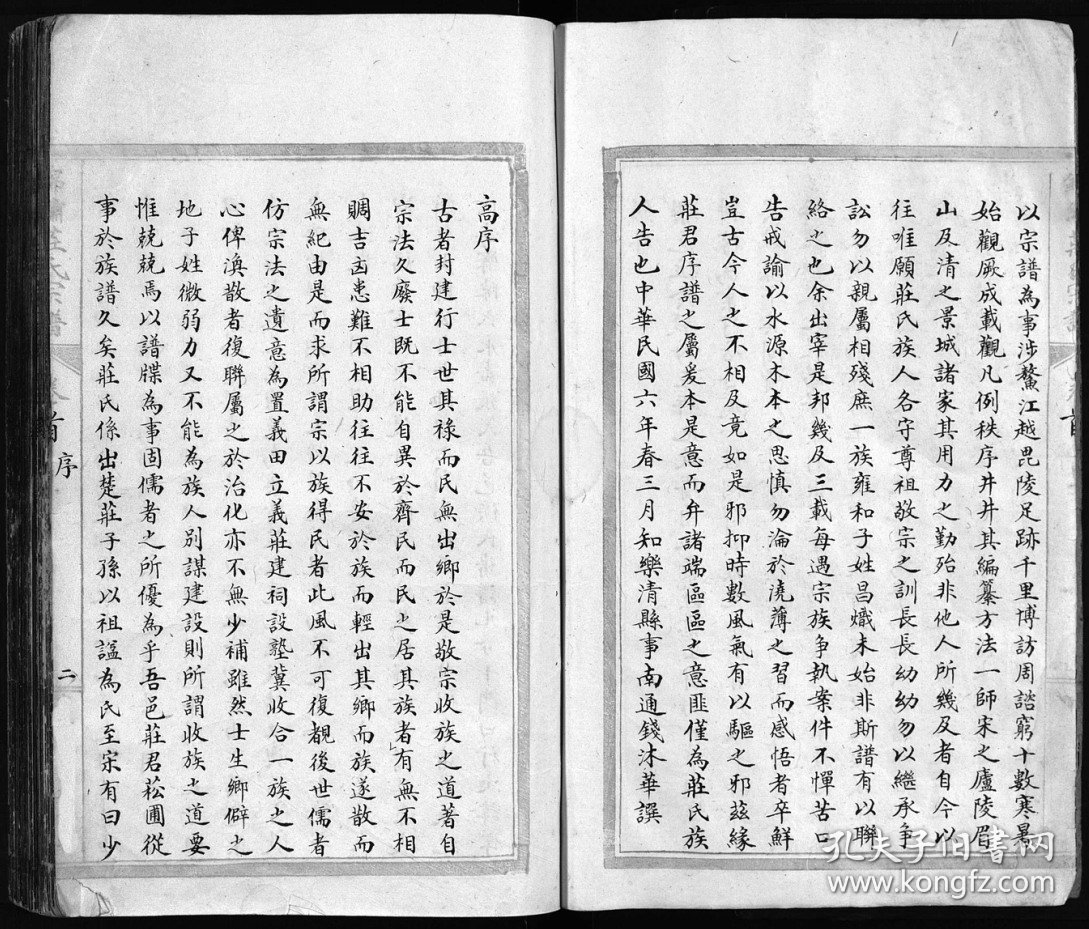 以宗譜為事涉鰲江越毘陵足跡千里博訪周諮窮十數寒暑
始觀厥成載觀凡例秩序井井其編纂方法一師宋之廬陵眉
山及清之景城諸家其用力之勤殆非他人所幾及者自今以
往唯願莊氏族人各守尊祖敬宗之訓長長幼幼勿以繼承爭
訟勿以親屬相殘庶一族雍和子姓昌熾未始非斯譜有以聯
絡之也余出宰是邦幾及三載每遇宗族爭執案件不憚苦口
告戒諭以水源木本之思慎勿淪於澆薄之習而感悟者卒鮮
豈古今人之不相及竟如是邪抑時數風氣有以驅之邪茲緣
莊君序譜之屬爰本是意而弁諸端區區之意匪僅為莊氏族
人告也中華民國六年春三月知樂清縣事南通錢沐華撰
高序
古者封建行士世其祿而民無出鄉於是敬宗收族之道著自
宗法久廢士既不能自異於齊民而民之居其族者有無不相
賙吉凶患難不相助往往不安於族而輕出其鄉而族遂散而
無紀由是而求所謂宗以族得民者此風不可復覩後世儒者
仿宗法之遺意為置義田立義莊建祠設塾冀收合一族之人
心俾渙散者復聯屬之於治化亦不無少補雖然士生鄉僻之
地子姓微弱力又不能為族人別謀建設則所謂收族之道要
惟兢兢焉以譜牒為事固儒者之所優為乎吾邑莊君菘圃從
事於族譜久矣莊氏係出楚莊子孫以祖諡為氏至宋有曰少
首
序
二
孔夫子旧书网
www.kongfz.com